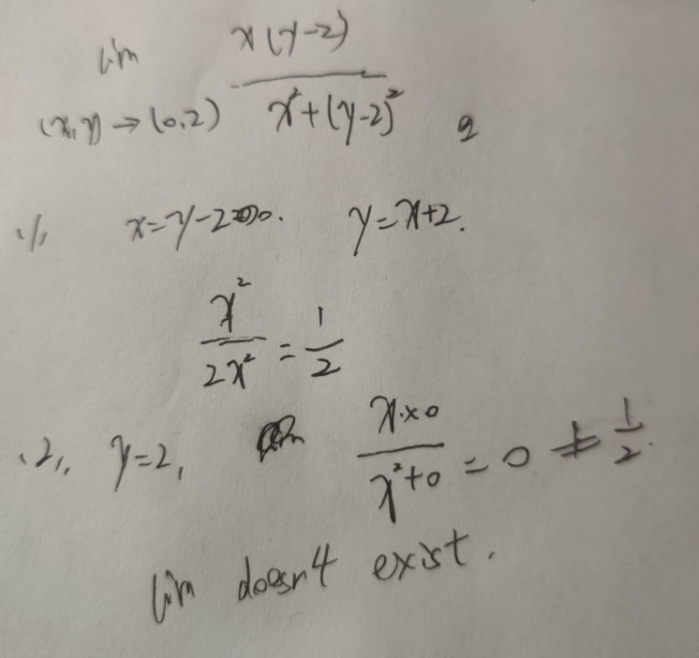 lim x(y-2)
(x,y)→(0,2) x²+(y-2)²
(1), x=y-2 y=x+2.
x²
2x² = 1/2
(2), y=2, x·×0
x²+0 = 0 ≠ 1/2.
lim doesn't exist.